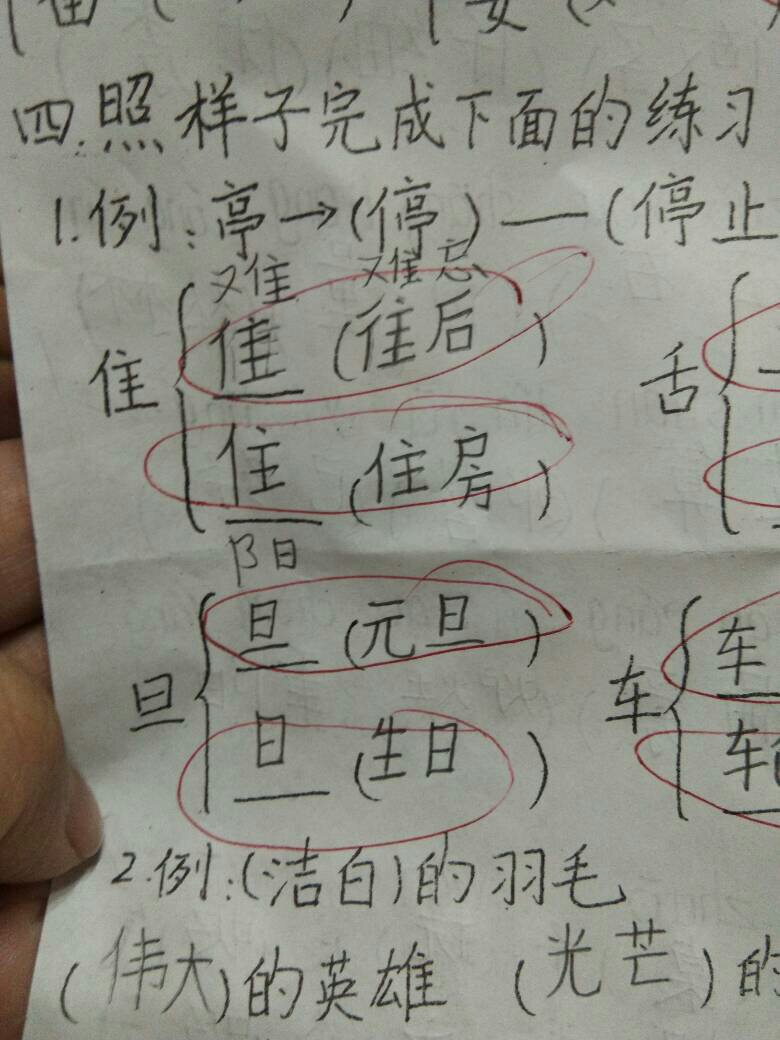 四.照样子完成下面的练习
1.例:亭→(停)—(停止
难 难忘
隹 佳 (往后)
住 (住房)
舌
阝日
旦 旦 (元旦)
日 (生日)
车 车
车
2.例:(洁白)的羽毛
(伟大)的英雄 (光芒)的